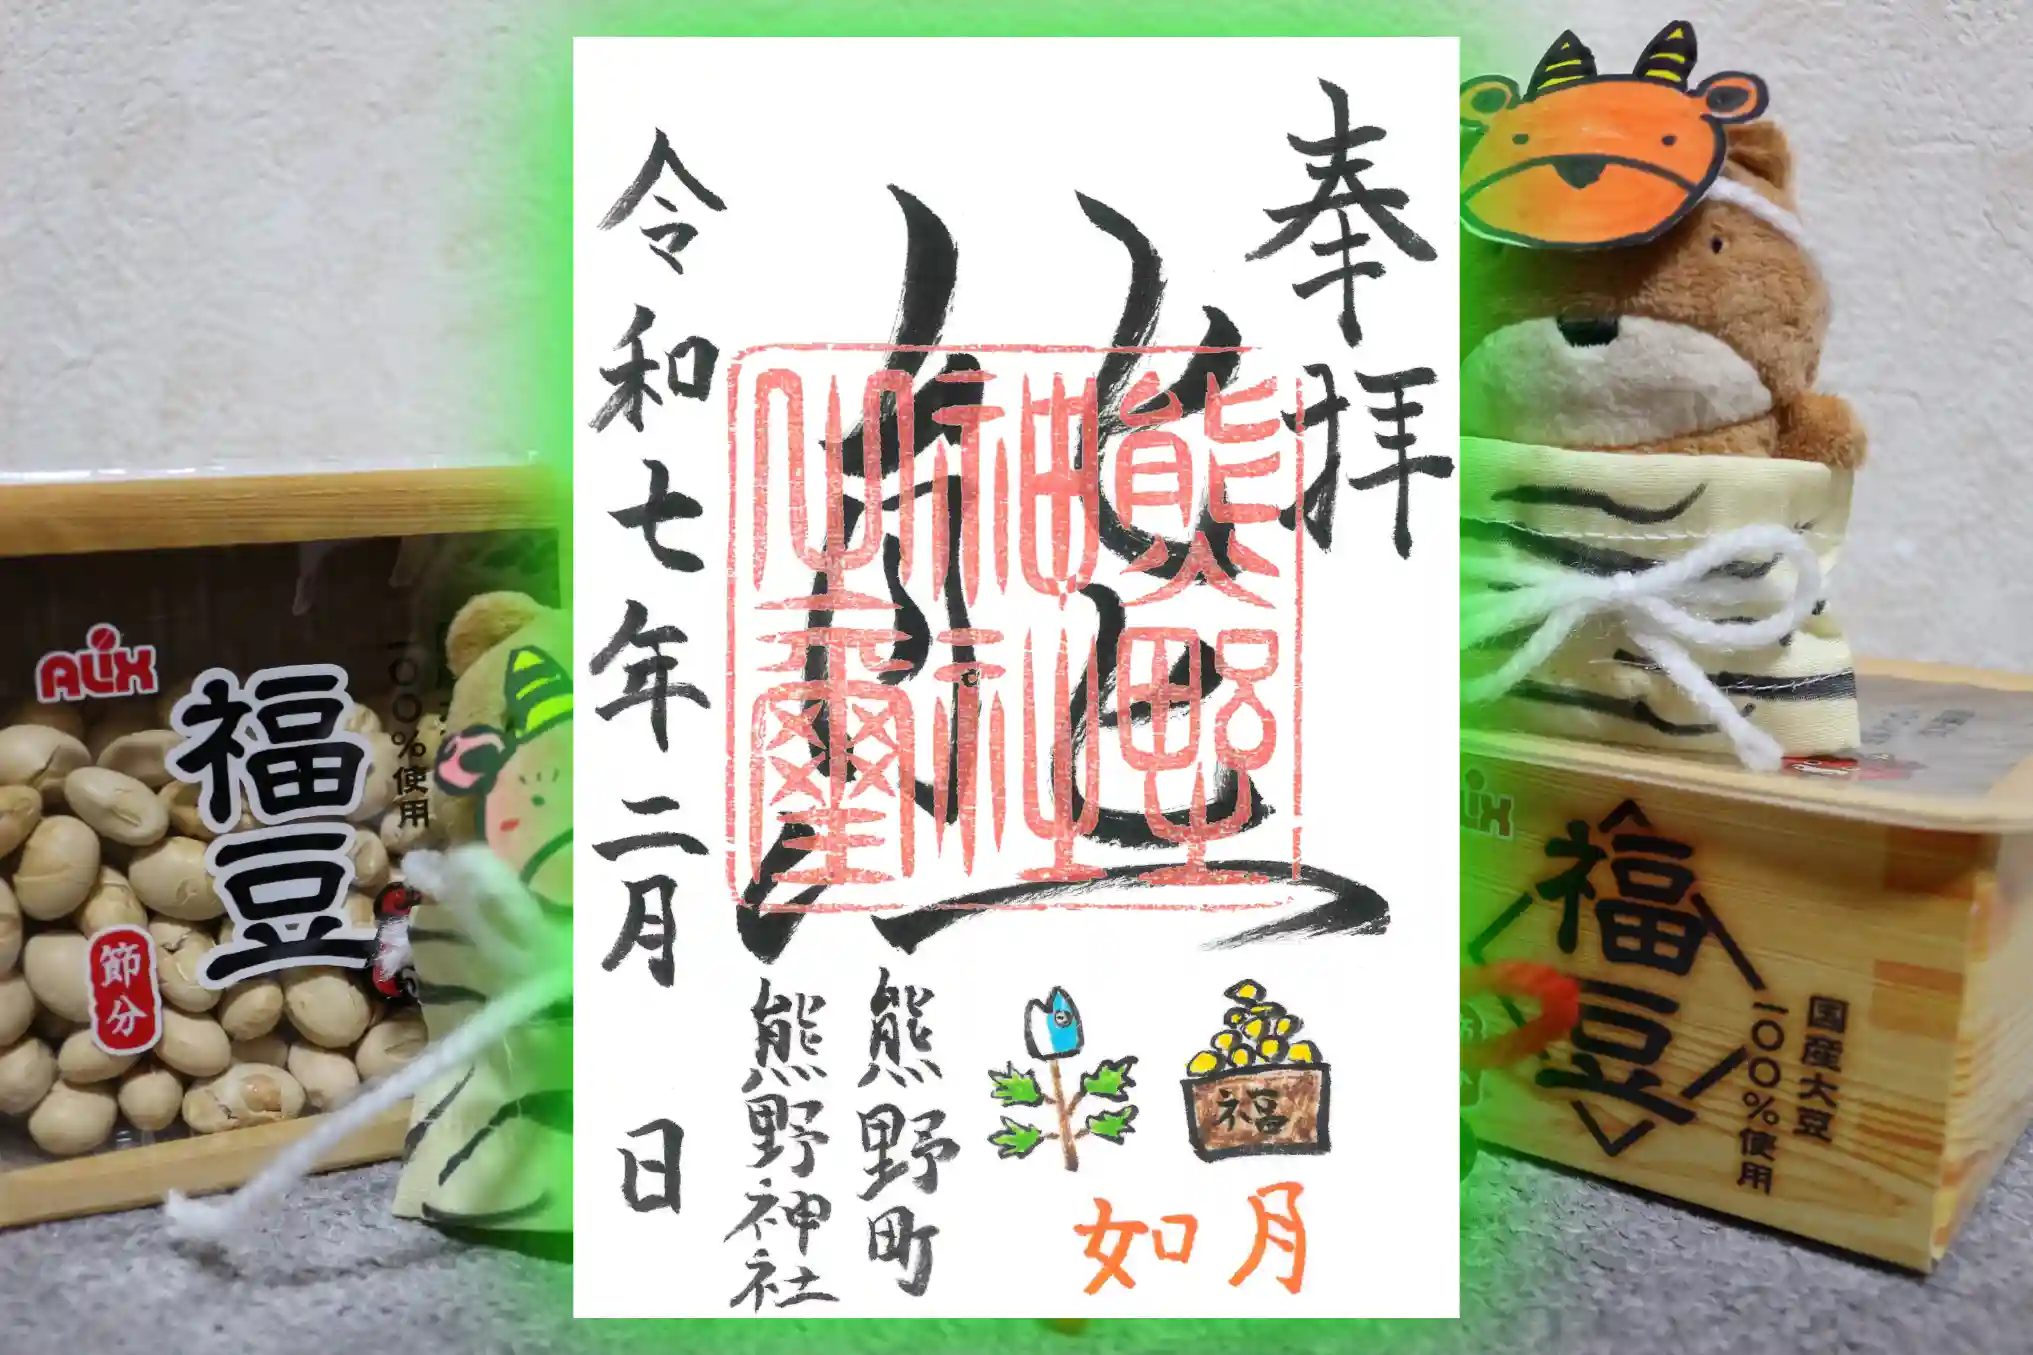 奉拝
熊野
神社
之璽
令和七年二月　日
福
如月
熊野町
熊野神社
ALIX
福豆
節分
一〇〇%使用
福豆
国産大豆
一〇〇%使用